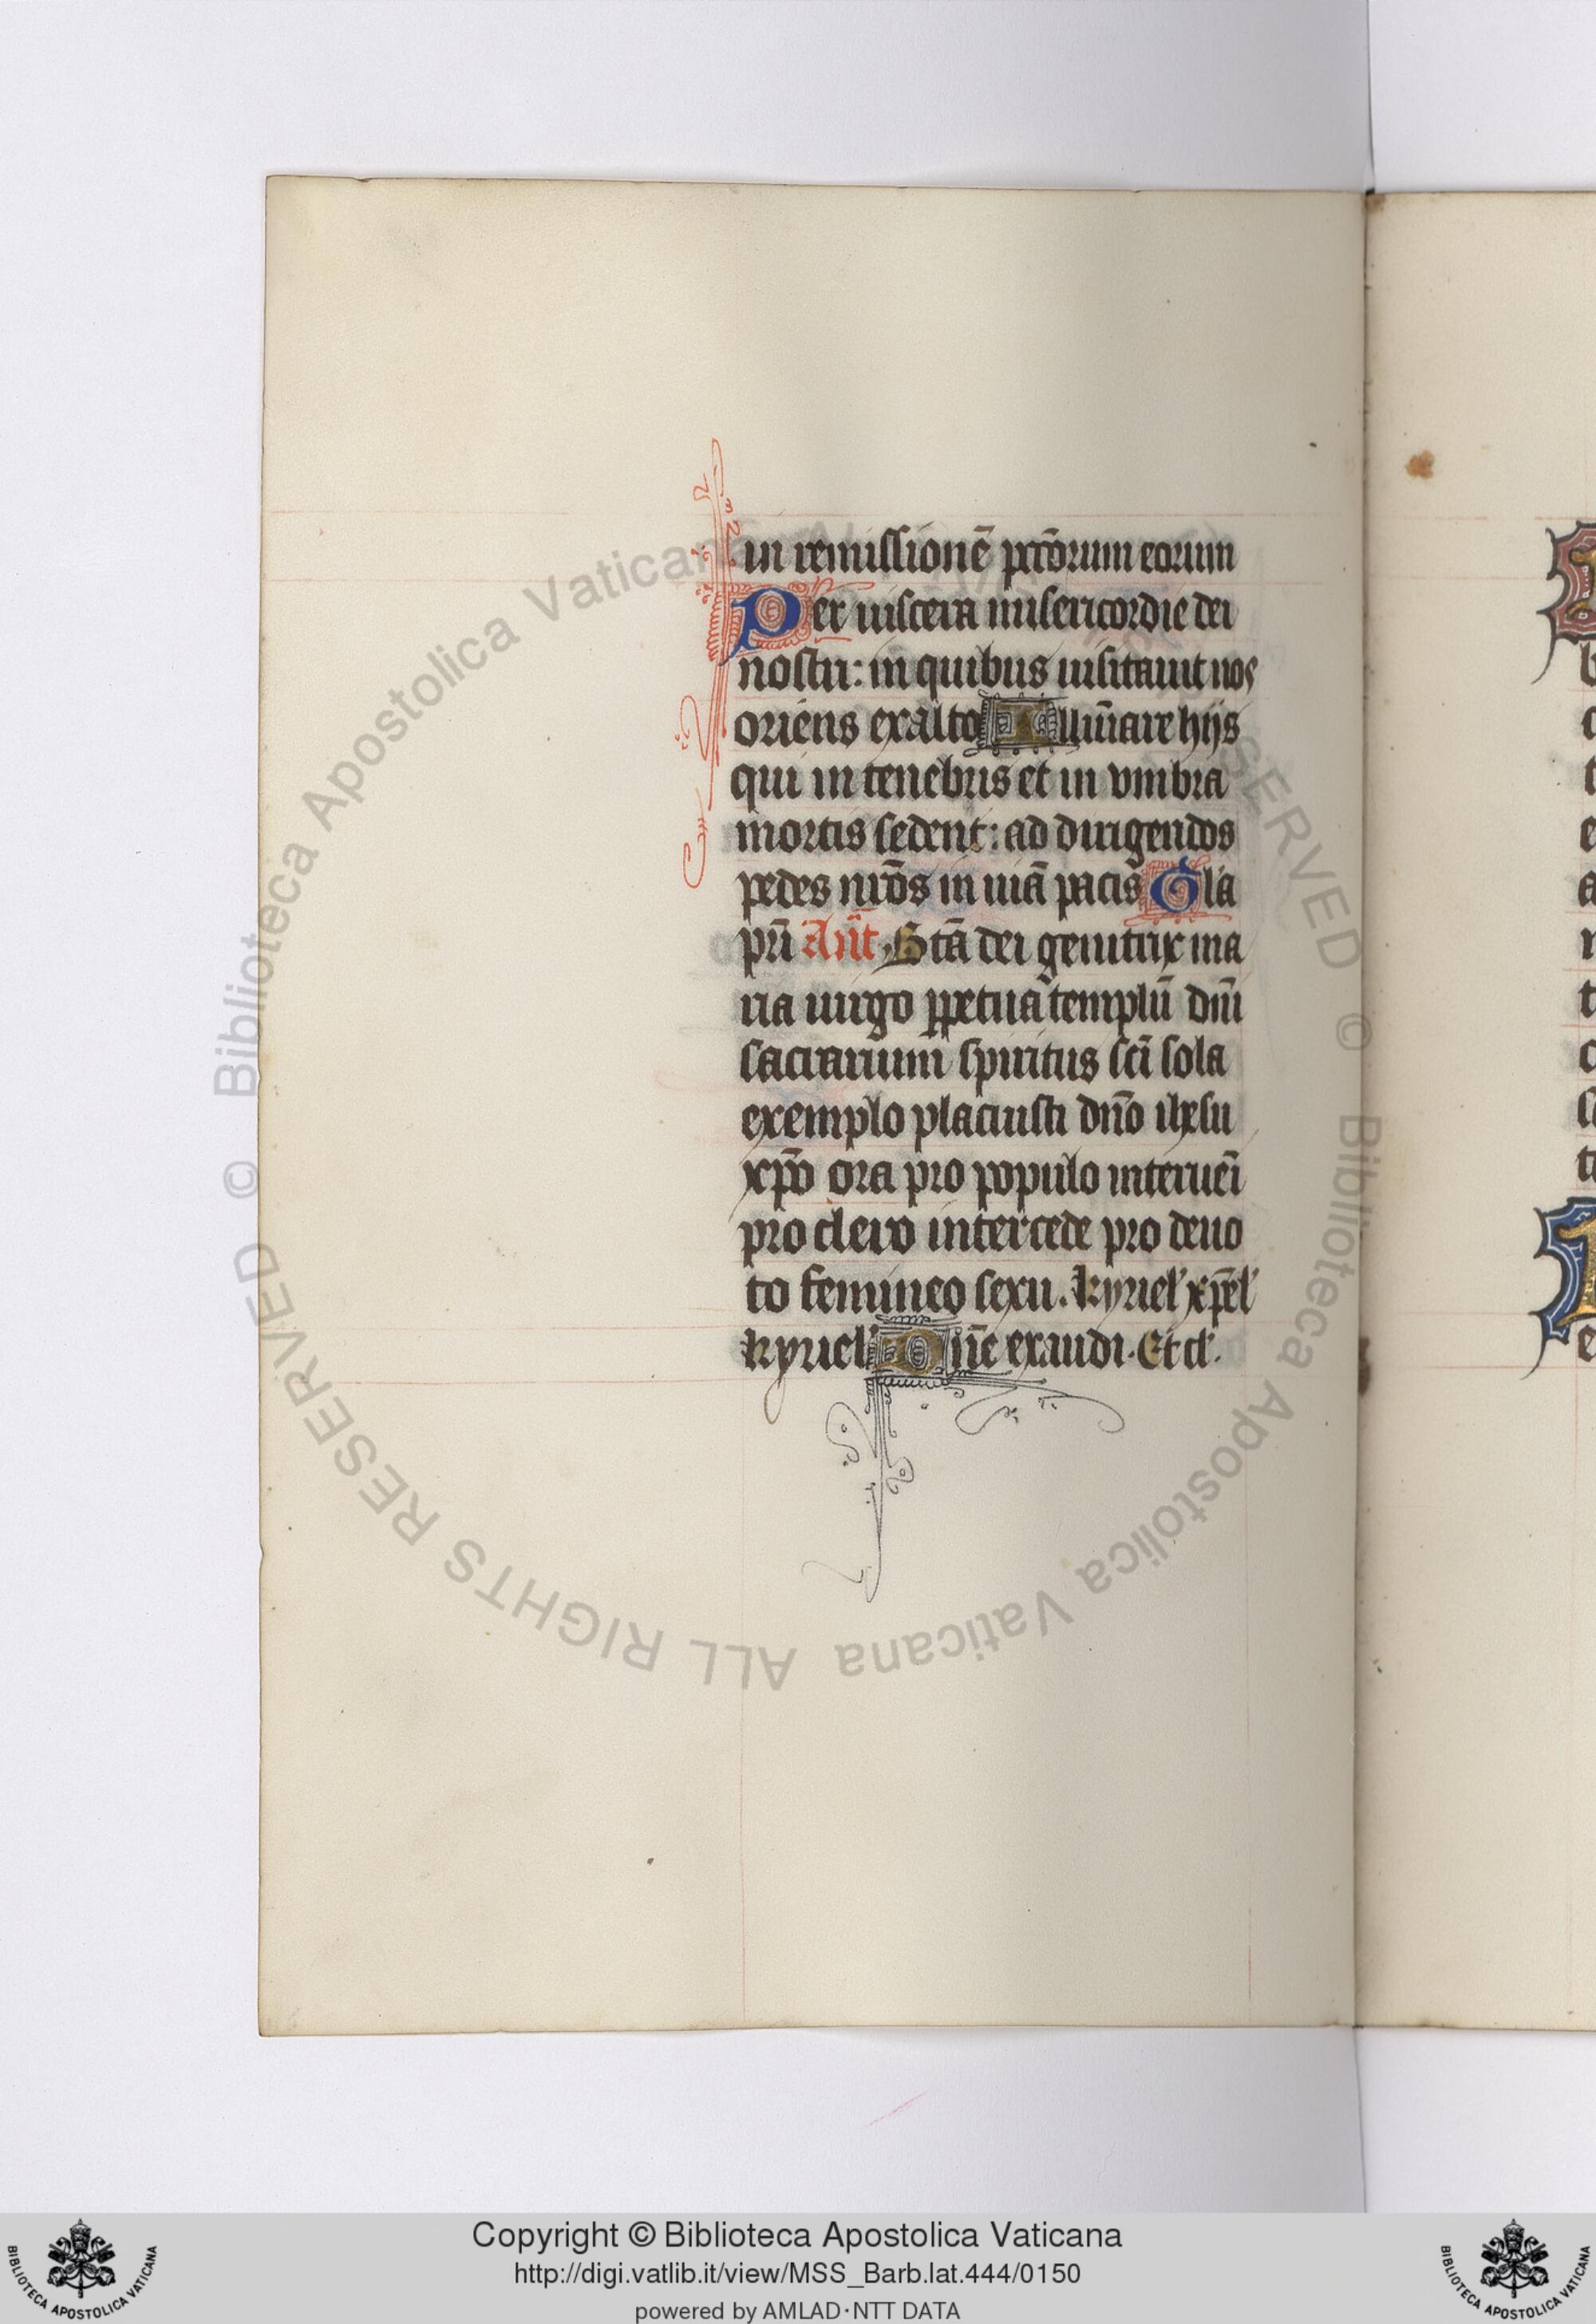 in remissionē pctō̄rum eorum
Per uiscera misericordie dei
nostri: in quibus uisitauit nos
oriens exalto Illuīare hijs
qui in tenebris et in vmbra
mortis sedent: ad dirigendos
pedes nr̄os in uiā pacis Gl'a
pr̄i An̄t Sctā dei genitrix ma
ria uirgo ꝑpetua templū dn̄i
sacrarium spiritus sc̄i sola
exemplo placuisti dn̄o ihesu
xp̄o ora pro populo interuēi
pro clero intercede pro deuo
to femineo sexu. kyriel' xp̄el'
kyriel' Dn̄e exaudi. Et cl'.
© Biblioteca Apostolica Vaticana ALL RIGHTS RESERVED © Biblioteca Apostolica Vaticana ALL RIGHTS RESERVED
Copyright © Biblioteca Apostolica Vaticana
http://digi.vatlib.it/view/MSS_Barb.lat.444/0150
powered by AMLAD·NTT DATA
BIBLIOTECA APOSTOLICA VATICANA
BIBLIOTECA APOSTOLICA VATICANA